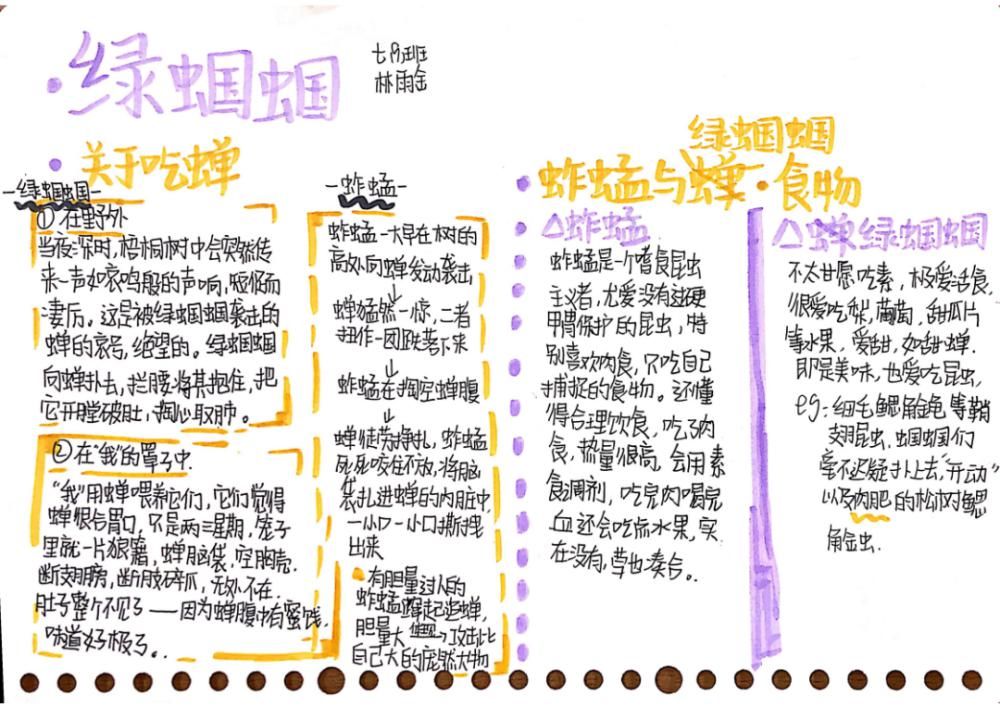 绿蝈蝈
林雨金
关于吃蝉
绿蝈蝈
①在野外
当夜深时,梧桐树中会突然传
来一声如哀鸣般的声响,短促而
凄厉。这是被绿蝈蝈袭击的
蝉的哀号,绝望的。绿蝈蝈
向蝉扑去,拦腰将其抱住,把
它开膛破肚,掏心取肺。
②在“我”的罩子中
“我”用蝉喂养它们,它们觉得
蝉很合胃口,只是两三星期,笼子
里就一片狼籍,蝉脑袋,空胸壳.
断翅膀,断肢碎爪,无处不在.
肚子整个不见了——因为蝉腹中有蜜饯,
味道好极了。.
蚱蜢
蚱蜢一大早在树的
高处向蝉发动袭击
↓
蝉猛然一惊,二者
扭作一团跌落下来
↓
蚱蜢在掏空蝉腹
↓
蝉徒劳挣扎,蚱蜢
死死咬住不放,将脑
袋扎进蝉的内脏中,
一小口一小口撕拽
出来
有胆量过人的
蚱蜢蹿起追蝉,
胆量大 体现→攻击比
自己大的庞然大物
绿蝈蝈
蚱蜢与蝉·食物
△蚱蜢
蚱蜢是一个嗜食昆虫
主义者,尤爱没有过硬
甲胄保护的昆虫,特
别喜欢肉食,只吃自己
捕捉的食物。还懂
得合理饮食,吃了肉
食,热量很高,会用素
食调剂,吃完肉喝完
血还会吃点水果,实
在没有,草也凑合。.
△蝉绿蝈蝈
不太甘愿吃素,极爱活食,
很爱吃梨,葡萄,甜瓜片
等水果,爱甜,如甜蝉.
即是美味,也爱吃昆虫,
eg:细毛鳃角金龟等鞘
翅昆虫.蝈蝈们
毫不迟疑扑上去“开动”
以及肉肥的松树鳃
角金虫.